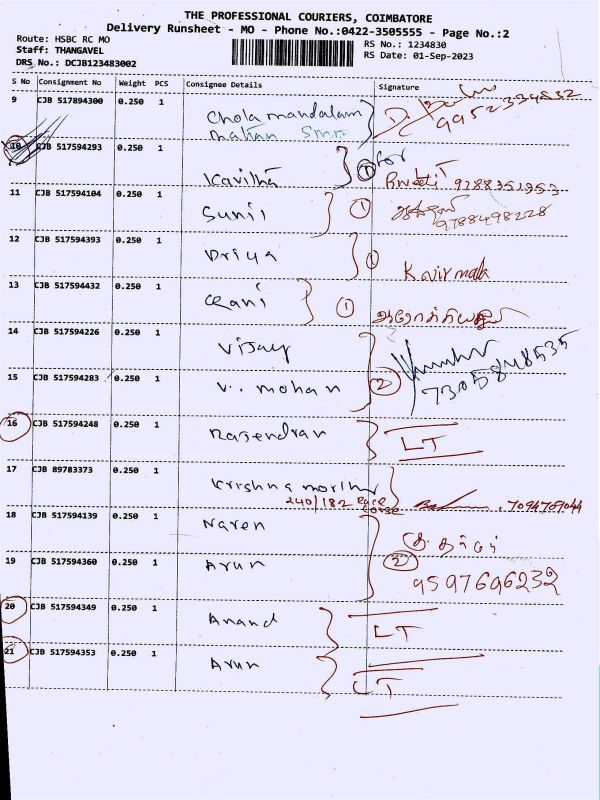 THE PROFESSIONAL COURIERS, COIMBATORE
Delivery Runsheet - MO - Phone No.:0422-3505555 - Page No.:2
Route: HSBC RC MO
RS No.: 1234830
Staff: THANGAVEL
RS Date: 01-Sep-2023
DRS No.: DCJB123483002
S No Consignment No Weight PCS Consignee Details Signature
9 CJB 517894300 0.250 1 Chola mandalam 9952334832
10 CJB 517594293 0.250 1 Kavitha 1 for 9788351353
11 CJB 517594104 0.250 1 Sunil 1 9788498228
12 CJB 517594393 0.250 1 Priya 1 K Nirmala
13 CJB 517594432 0.250 1 Rani 1
14 CJB 517594226 0.250 1 Vijay
15 CJB 517594283 0.250 1 V. mohan 2 7305848535
16 CJB 517594248 0.250 1 Rajendran LT
17 CJB 89783373 0.250 1 Krishna morthy
240/182 7094767044
18 CJB 517594139 0.250 1 Naren
19 CJB 517594360 0.250 1 Arun 2 9597696232
20 CJB 517594349 0.250 1 Anand LT
21 CJB 517594353 0.250 1 Arun LT